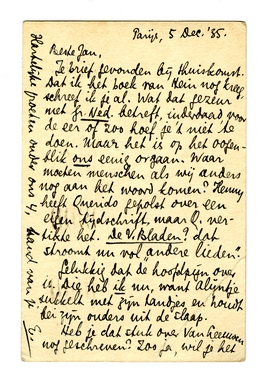 Parijs, 5 Dec. '35.
Beste Jan,
Je brief gevonden bij thuiskomst.
Dat ik het boek van Hein nog kreeg
schreef ik je al. Wat dat gezeur
met Gr. Ned. betreft, inderdaad voor
de eer of zoo hoef je 't niet te
doen. Maar het is op het oogen-
blik ons eenig orgaan. Waar
moeten menschen als wij anders
nog aan het woord komen? Henny
heeft Querido gepolst over een
eigen tijdschrift, maar Q. ver-
tikte het. De V. Bladen? dat
stroomt nu vol andere lieden.
Gelukkig dat de hoofdpijn over
is. Die heb ik nu, want Alijntje
sukkelt met zijn tandjes en houdt
dei zijn ouders uit de slaap.
Heb je dat stuk over Van Leeuwen
nog geschreven? Zoo ja, wil je het
Hartelijke groeten onder ons 4, hand van je
E.